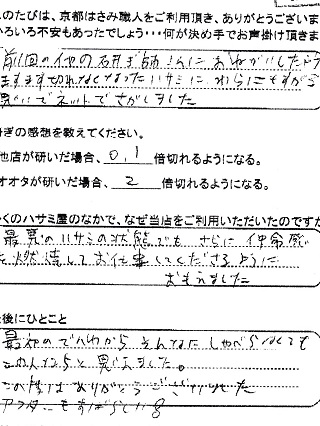 このたびは、京都はさみ職人をご利用頂き、ありがとうござい
いろいろ不安もあったでしょう･･･何が決め手でお声掛け頂きま
前回の他の研ぎ師さんにおねがいしたら
ますます切れなくなったハサミに わらにもすがる
思いでネットでさがしました
ぎの感想を教えてください。
他店が研いだ場合、0,1 倍切れるようになる。
オオタが研いだ場合、2 倍切れるようになる。
くのハサミ屋のなかで、なぜ当店をご利用いただいたのですか
最悪のハサミの状態でも さらに使命感
に燃焼してお仕事してくださるように
おもえました
後にひとこと
最初のでんわから そんなに しゃべらなくても
この人なら と思いました。
この度はありがとうございました
アフターもすばらしい